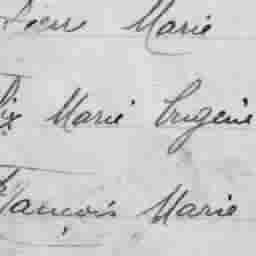 Pierre Marie
Félix Marie Eugène
François Marie